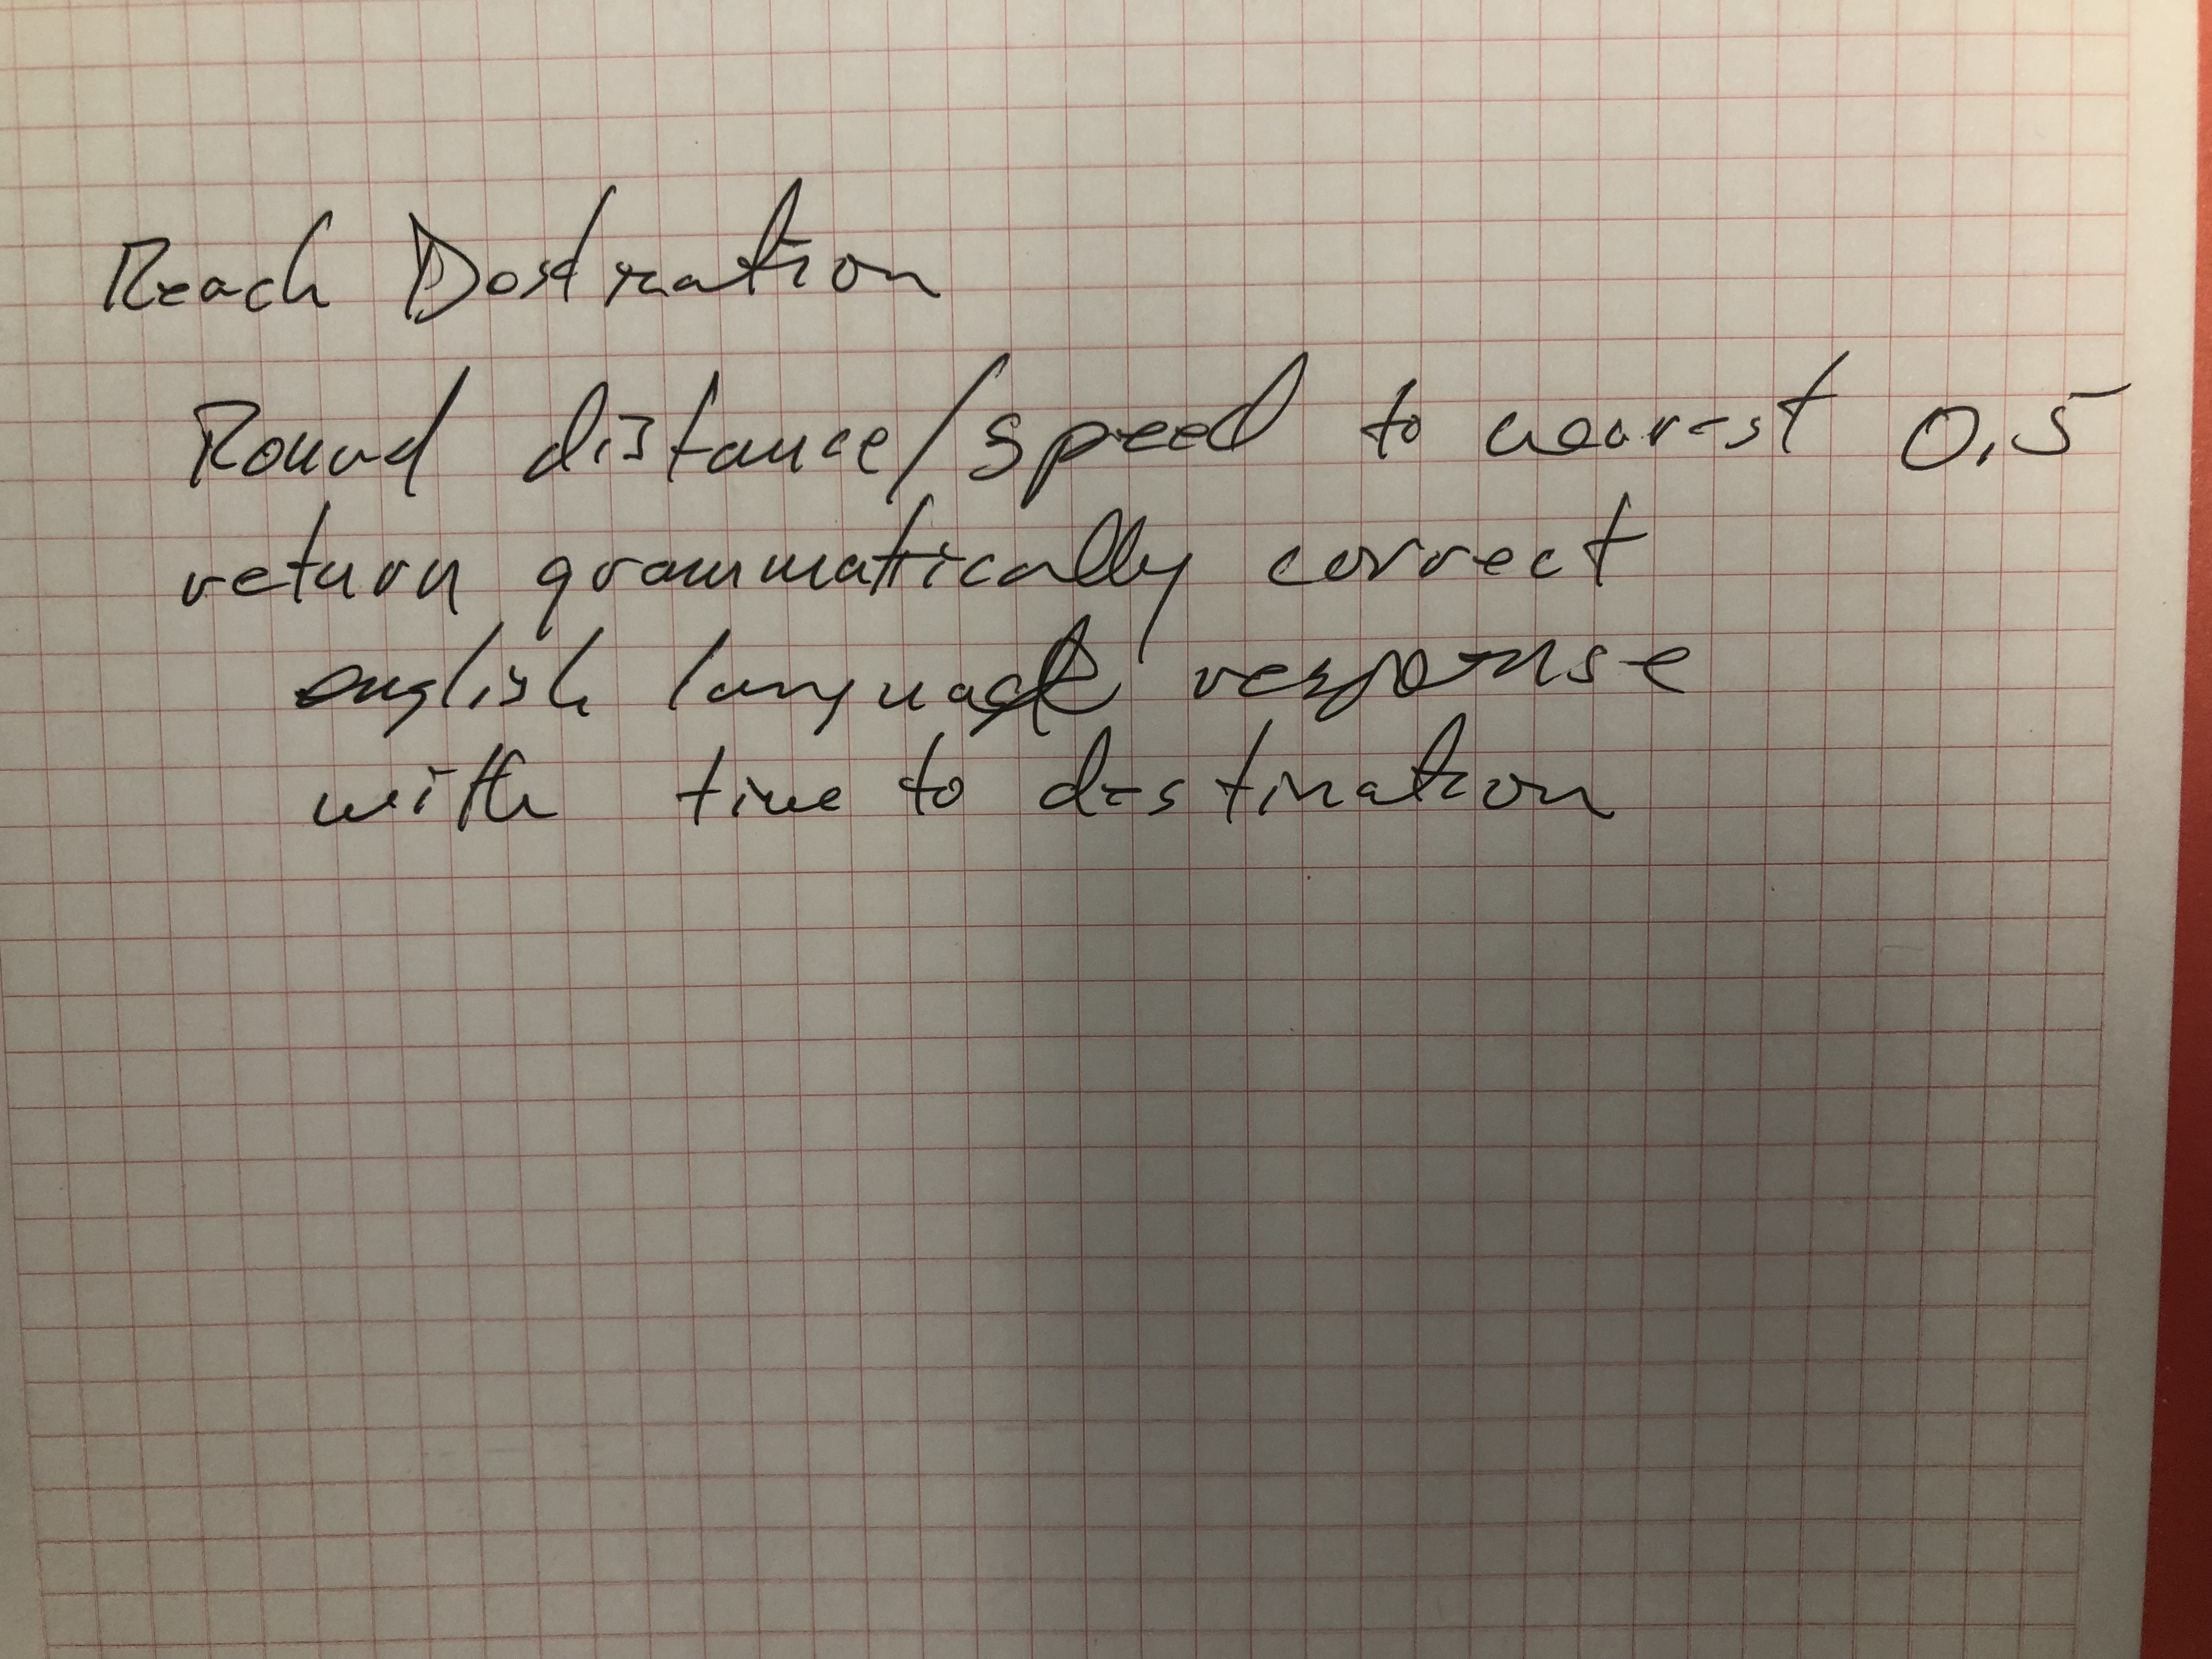 Reach Destination
Round distance/speed to nearest 0.5
return grammatically correct
english language response
with time to destination